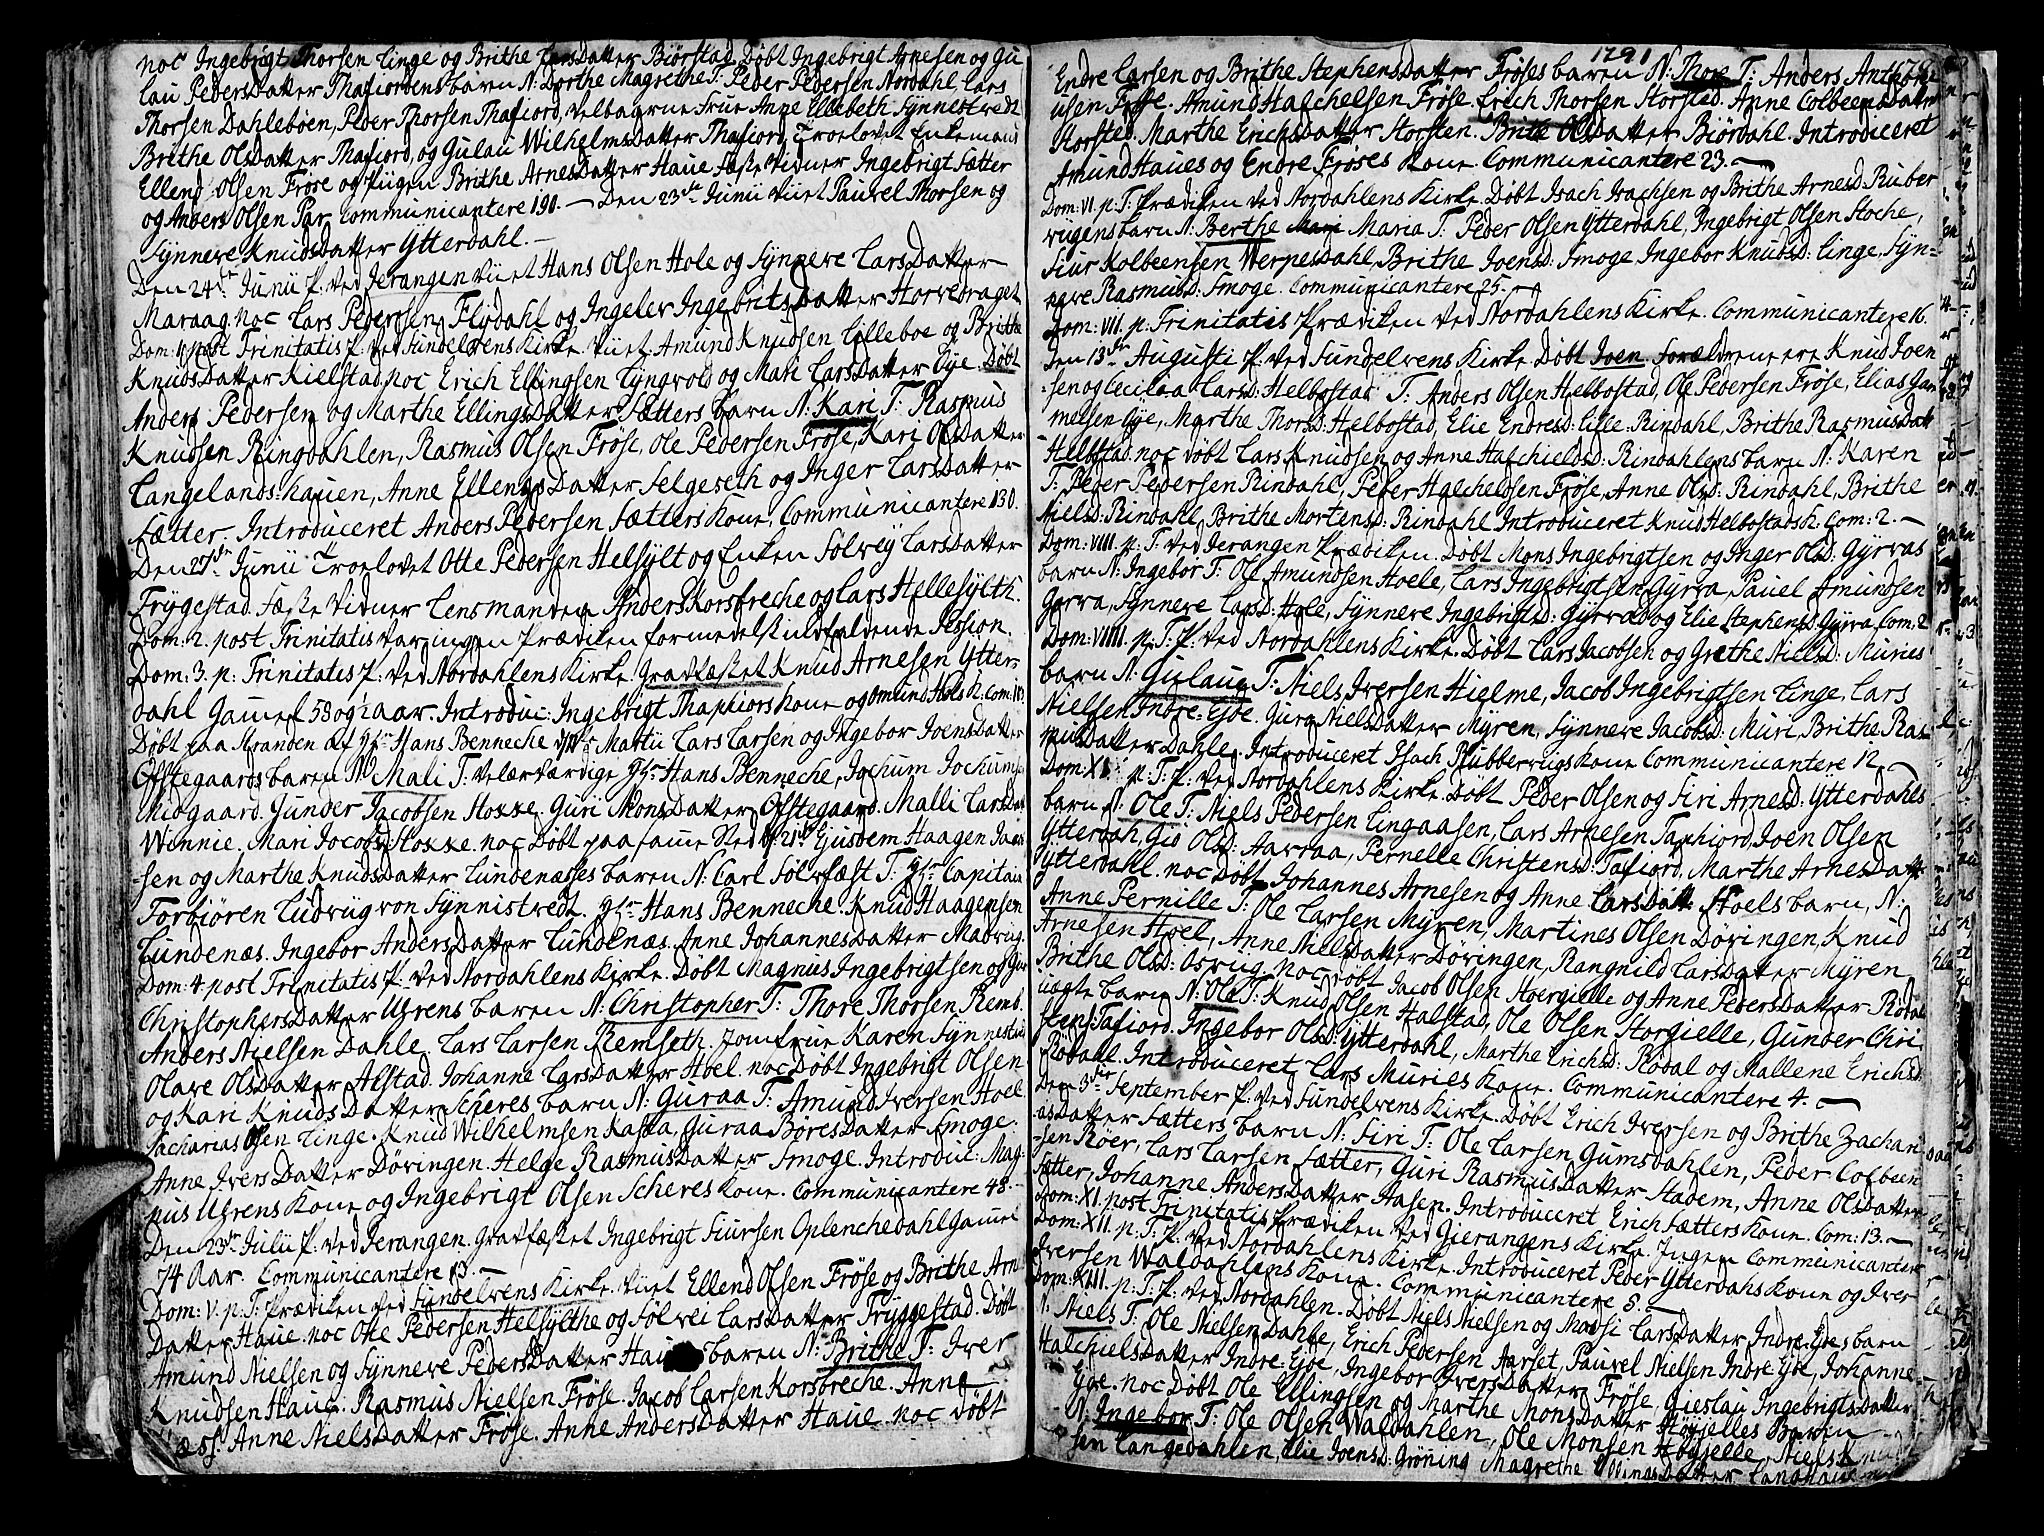 noc Ingebrigt Thorsen Linge og Brithe LarsDatter Biørstad. Døbt Ingebrigt Arnesen og Gu
lau PedersDatter Thafiordens barn N: Dorthe Magrethe T: Peder Pedersen Nordahl, Lars
Thorsen Dahlebøen, Peder Thorsen Thafiord, velbaarne Frue Anne Ellebeth Synnestvedt
Brithe OlsDatter Thafiord, og Gulau WilhelmsDatter Thafiord. Troelovet Enkemand
Ellend Olsen Frøse og Pigen Brithe ArnesDatter Haue Fæste Vidner Ingebrigt Sætter
og Anders Olsen Par Communicantere 190. — Den 23de Junii Viiet Pauvel Thorsen og
Synnere KnudsDatter Ytterdahl. —
Den 24de Junii P. ved Jerangen Viiet Hans Olsen Hole og Synnere LarsDatter
Maraag. noc Lars Pedersen Flydahl og Ingelev IngebritsDatter Horvedraget
Dom: 1 post Trinitatis P. ved Sundelvens Kirke. Viiet Amund Knudsen Lilleboe og Brithe
KnudsDatter Kielstad. noc Erich Ellingsen Lyngvold og Mari LarsDatter Øye. Døbt
Anders Pedersen og Marthe EllingsDatter Sætters barn N: Kari T: Rasmus
Knudsen Ringdahlen, Rasmus Olsen Frøse, Ole Pedersen Frøse, Kari OlsDatter
Langelands-hauen, Anne EllengsDatter Selgeseth og Inger LarsDatter
Sætter. Introduceret Anders Pedersen Sætters Kone, Communicantere 130.
Den 27de Junii Troelovet Otte Pedersen Helsylt og Enken Solvey LarsDatter
Trygestad. Fæste Vidner Lensmanden Anders Korsbreche og Lars Hellesylth.
Dom: 2. post Trinitatis var ingen Prædiken formedelst indfaldende Session.
Dom: 3. p: Trinitatis P. ved Nordahlens Kirke. Gravfæstet Knud Arnesen Ytter-
dahl Gamel 58 og ½ aar. Introduc: Ingebrigt Thaphiors Kone og Omund Hols K. Com: 103.
Døbt paa Stranden af Hr: Hans Benneche Martii Lars Larsen og Ingebor JoensDatter
Ofstegaards barn N: Mali T: velærværdige Hr: Hans Bennecke, Jochum Jochumsen
Midgaard. Gunder Jacobsen Hoxxe. Guri MonsDatter Ofstegaard. Malli LarsDatt
Winnie. Mari Jacobsd: Hoxxe. noc Døbt paa samme Sted d: 21de Ejusdem Haagen Jaar
-sen og Marthe KnudsDatter Lundenæsses barn N: Carl Solvfæst T: Hr: Capitain
Torbiören Ludvig von Synnistvedt. Hr: Hans Bennecke. Knud Haagensen
Lundenæs. Ingebor AndersDatter Lundenæs. Anne JohannesDatter Madvug.
Dom: 4. post Trinitatis P. ved Nordahlens Kirke. Døbt Magnus Ingebrigtsen og Guri
ChristophersDatter Uhrens barn N: Christopher T: Thore Thorsen Rems.
Anders Nielsen Dahle. Lars Larsen Remseth. Jomfrue Karen Synnestvedt
Olave OlsDatter Alstad. Johanne LarsDatter Hoel. noc Døbt Ingebrigt Olsen
og Kari KnudsDatter Scheres barn N: Guraa T: Amund Iversen Hoel
Zacharias Olsen Linge. Knud Wilhelmsen Kasta, Guraa BoresDatter Smoge.
Anne IversDatter Døvingen. Helge RasmusDatter Smoge. Introduc: Mag-
nus Uhrens Kone og Ingebrigt Olsen Scheres Kone. Communicantere 48. —
Den 23de Julii P. ved Jerangen. Gravfæstet Ingebrigt Siursen Oplenchedahl Gamel
74 aar. Communicantere 13. —
Dom: V. p. T: Prædiken ved Sundelvens Kirke. Viiet Ellend Olsen Frøse og Brithe Arn
Datter Haue. noc Otte Pedersen Helsylthe og Solvei LarsDatter Tryggestad. Døbt
Amund Nielsen og Synneve PedersDatter Haues barn N: Brithe T: Iver
Knudsen Haue. Rasmus Nielsen Frøse. Jacob Larsen Korsbreche. Anne
Anne NielsDatter Frøse. Anne AndersDatter Haue. noc Døbt
1791
Endre Larsen og Brithe StephensDatter Frøses barn N: Thore T: Anders Anthoni
usen Frøse. Amund Hafchelsen Frøse. Erich Thorsen Storsted. Anne ColbeensDatter
Storsted. Marthe ErichsDatter Storsten. Brithe OlsDatter Biørdahl. Introduceret
Amund Haues og Endre Frøses Kone. Communicantere 23. —
Dom: VI. p. T: Prædiken ved Nordahlens Kirke. Døbt Isach Isachsen og Brithe Arnesd: Ruber
vigens barn N: Berthe Maria T: Peder Olsen Ytterdahl, Ingebrigt Olsen Stoche,
Siur Kolbeensen Werpesdahl, Brithe Joensd: Smoge Ingebor Knudsd: Linge, Syn-
nøve Rasmusd: Smoge. Communicantere 25. —
Dom: VII. p. Trinitatis Prædiken ved Nordahlens Kirke. Communicantere 16.
Den 13de Augusti P. ved Sundelvens Kirke. Døbt Joen. forældrene ere Knud Joen
sen og Cecilaa Larsd: Helbostad T: Anders Olsen Helbostad, Ole Pedersen Frøse, Elias Gam
melsen Øye, Marthe Thorsd: Helbostad, Elie Endresd: Lille-Rindahl, Brithe RasmusDatt
Helbstad. noc døbt Lars Knudsen og Anne Hafchieldsd: Rindahlens barn N: Karen
T: Peder Pedersen Rindahl, Peder Halcheldsen Frøse, Anne Olsd: Rindahl, Brithe
Nielsd: Rindahl, Brithe Mortensd: Rindahl Introduceret Knud Helbostads K. Com: 2. —
Dom: VIII. p. T: ved Jerangen Prædiken. Døbt Mons Ingebrigtsen og Inger Olsd: Gyrvas
barn N: Ingebor T: Ole Amundsen Hoele, Lars Ingebrigtsen Gyrva, Pauel Amundsen
Gyrva, Synnere Larsd: Hole, Synnere Ingebrigtsd: Gyrva og Elie Stephensd: Gyrva Com: 2
Dom: VIIII. p. T: P. ved Nordahlens Kirke. Døbt Lars Jacobsen og Grethe Nielsd: Muries
barn N: Gulaue T: Niels Iversen Hielme, Jacob Ingebrigtsen Linge, Lars
Nielsen Indre-Eyde. Guru NielsDatter Myren, Synnere Jacobsd: Muri, Brithe Ras-
musDatter Dahle. Introduceret Isach Rubbervigs Kone Communicantere 12. —
Dom: X. p. T: P. ved Nordahlens Kirke. Døbt Peder Olsen og Siri Arnesd: Ytterdahls
barn N: Ole T: Niels Pedersen Lingaasen, Lars Arnesen Taphiord, Joen Olsen
Ytterdah, Gio Olsd: Aarraa, Pernelle Christensd: Tafiord, Marthe ArnesDatt
Ytterdahl. noc Døbt Johannes Arnesen og Anne LarsDatt: Hoels barn, N:
Anne Pernille T: Ole Larsen Myren, Martines Olsen Døvingen, Knud
Arnesen Hoel, Anne NielsDatter Døvingen, Rangnild LarsDatter Myren
Brithe Olsd: Osvug. noc døbt Jacob Olsen Hoergielle og Anne PedersDatter Rødals
uægte barn N: Ole T: Knud Olsen Halstad, Ole Olsen Storgielle, Gunder Chri
sten: Tafiord. Ingebor Olsd: Ytterdahl, Marthe Erichsd: Rødal og Mallene Erichsd:
Rødahl. Introduceret Lars Muries Kone. Communicantere 4. —
Den 3die September P. ved Sundelvens Kirke. Døbt Erich Iversen og Brithe Zachari-
asDatter Sætters barn N: Siri T: Ole Larsen Gumsdahlen, Peder Colbeen
-sen Roer, Lars Larsen Sætter, Guri RasmusDatter Stadem, Anne OlsDatter
Sætter, Johanne AndersDatter Aasen. Introduceret Erich Sætters Kone. Com: 13. —
Dom: XI. post Trinitatis Prædiken ved Gierangens Kirke. Ingen Communicantere
Dom: XII. p. T: P. ved Nordahlens Kirke. Introduceret Peder Ytterdahs Kone og Iver
Iversen Waldahlens Kone. Communicantere 8. —
Dom: XIII. p. T: P. ved Nordahlen. Døbt Niels Nielsen og Madsi LarsDatter Indre-Eyes barn
N: Niels T: Ole Nielsen Dahle, Erich Pedersen Aarset, Pauvel Nielsen Indre-Eyde, Johanne
HalchielsDatter Indre-Eyde, Ingebor IversDatter Frøse, Gieslau IngebrigtsDatter
Eyde. noc Døbt Ole Ellingsen og Marthe MonsDatter Høyjelles Barn
N: Ingebor T: Ole Olsen Waldahlen, Ole Monsen Høygjelle, Niels Knud
sen Langedahlen, Elie Joensd: Grøning Magrethe EllingsDatter Langhauen